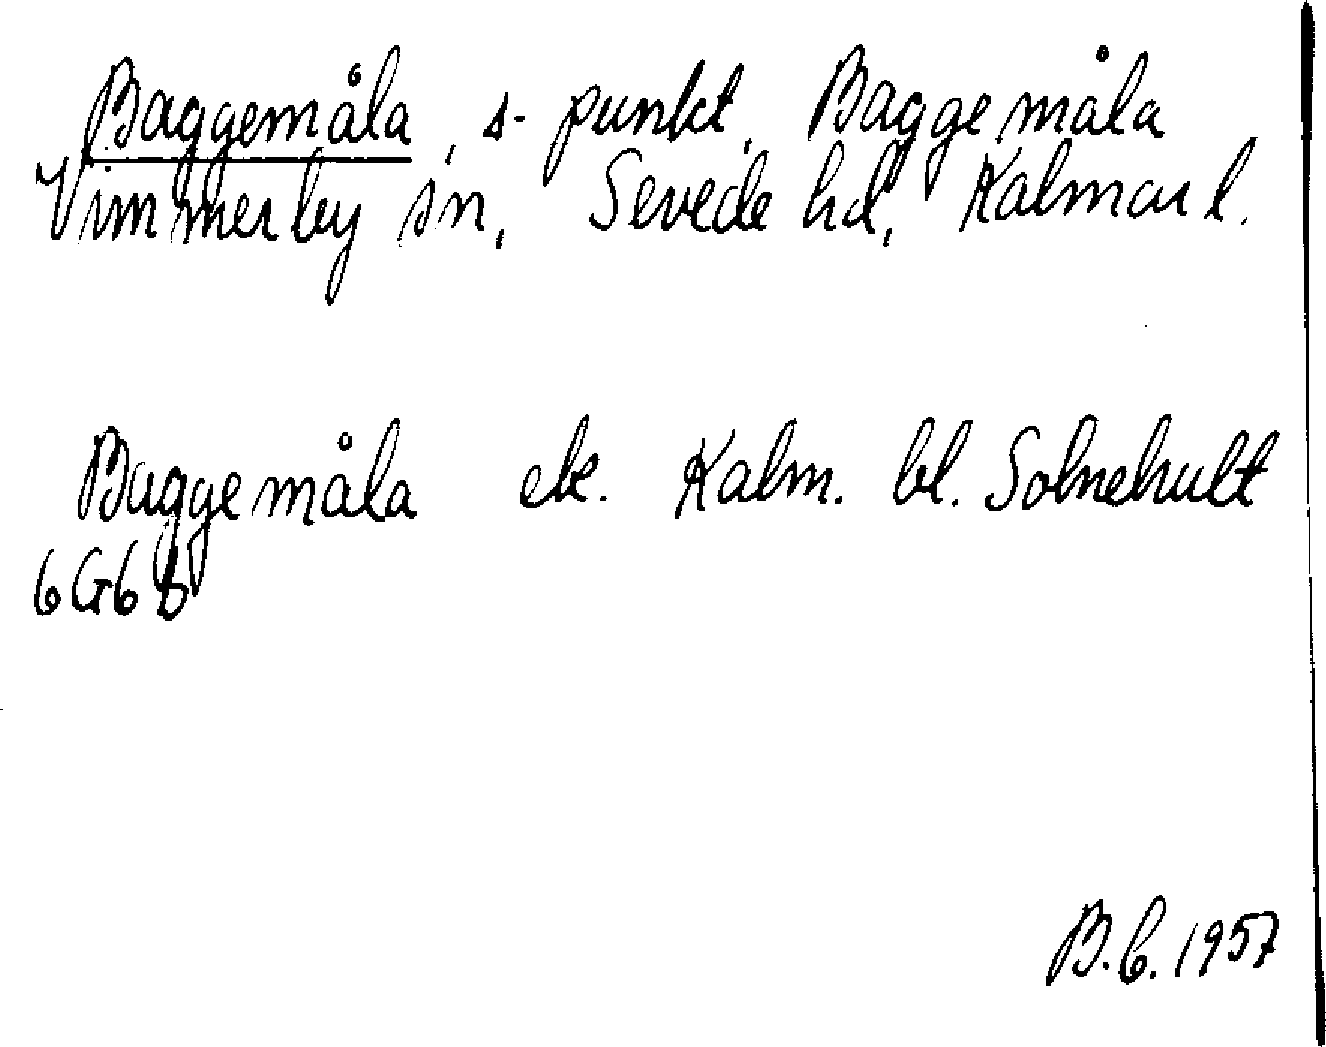 Baggemåla, s-punkt, Baggemåla
Vimmerby sn, Sevede hd, Kalmar l.
Baggemåla ek. Kalm. bl. Solnehult
6G6b
B.C. 1957